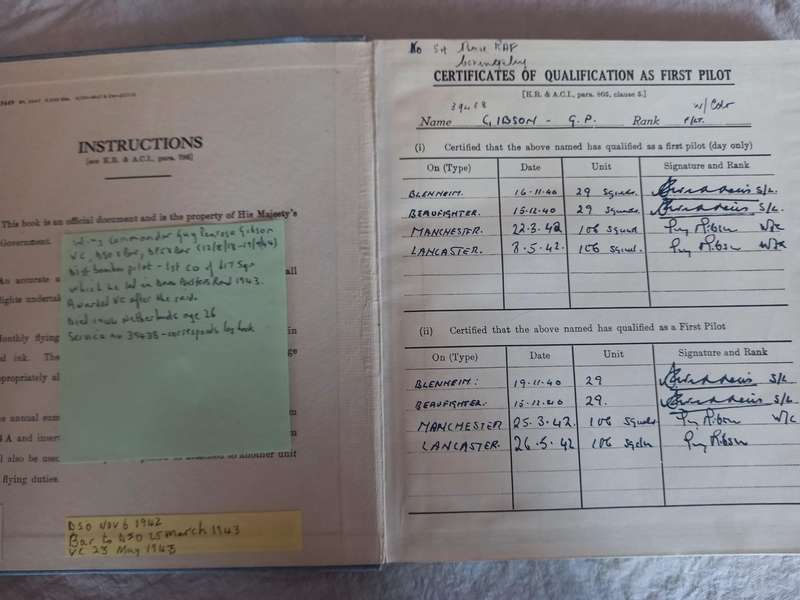 INSTRUCTIONS
[see K.R. & A.C.I., para. 786]
This book is an official document and is the property of His Majesty's
Government.
An accurate a
all
lights underta
onthly flying
in
d ink. The
ge
propriately al
annual sum
4 A and insert
l also be used
another unit
flying duties.
Wing Commander Guy Penrose Gibson
VC, DSO & Bar, DFC & Bar (12/8/18-19/9/44)
Dist bomber pilot - 1st CO of 617 Sqn
which he led in Dam Busters Raid 1943.
Awarded VC after the raid.
Died Netherlands age 26
Service no 39438 - corresponds log book
DSO NOV 6 1942
Bar to DSO 25 march 1943
VC 23 May 1943
No RAF
Coningsby
CERTIFICATES OF QUALIFICATION AS FIRST PILOT
[K.R. & A.C.I., para. 805, clause 5.]
39438 W/Cdr
Name GIBSON - G.P. Rank F/Lt.
(i) Certified that the above named has qualified as a first pilot (day only)
On (Type) Date Unit Signature and Rank
BLENHEIM. 16-11-40 29 Squdn. S/L.
BEAUFIGHTER. 15-12-40 29 Squdn. S/L.
MANCHESTER 22.3.42 106 Squad. Guy Gibson W/C
LANCASTER 8.5.42. 106 Squad. Guy Gibson W/C
(ii) Certified that the above named has qualified as a First Pilot
On (Type) Date Unit Signature and Rank
BLENHEIM: 19-11-40 29 S/L
BEAUFIGHTER. 15-12-40 29. S/L.
MANCHESTER 25.3.42 106 Squad Guy Gibson W/C
LANCASTER. 26.5.42 106 Sqdn Guy Gibson